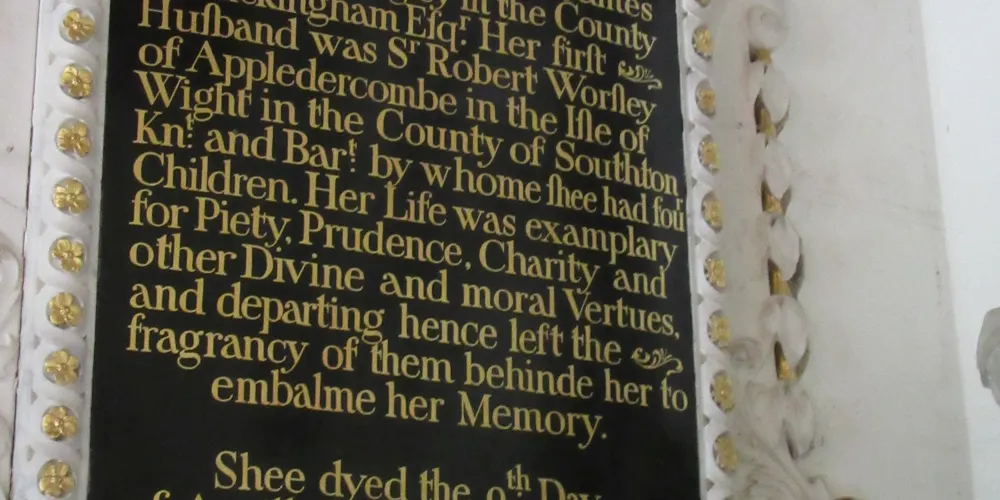 in the County
kingham Eſqr. Her firſt
Huſband was Sr Robert Worſley
of Appledercombe in the Iſle of
Wight in the County of Southton
Knt. and Bart. by whome ſhee had four
Children. Her Life was examplary
for Piety, Prudence, Charity and
other Divine and moral Vertues,
and departing hence left the
fragrancy of them behinde her to
embalme her Memory.
Shee dyed the 9th Day